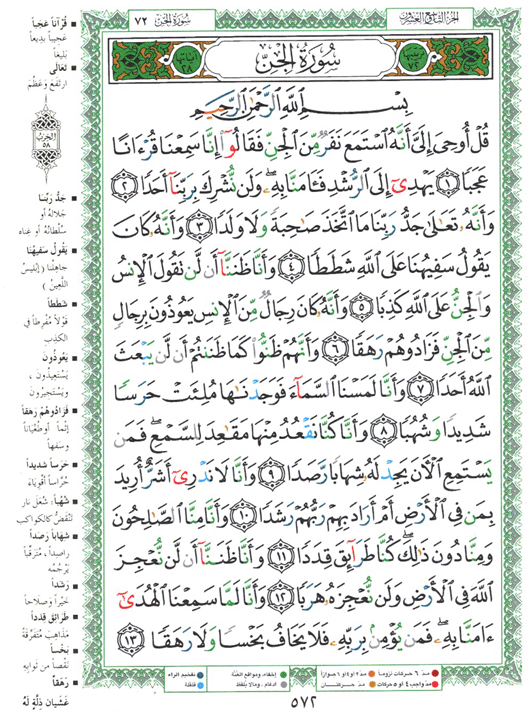 الجزء التاسع والعشرون
سورة الجن ٧٢
سُورَةُ الجِنِّ
بِسْمِ اللَّهِ الرَّحْمَٰنِ الرَّحِيمِ
قُلْ أُوحِيَ إِلَيَّ أَنَّهُ ٱسْتَمَعَ نَفَرٌ مِّنَ ٱلْجِنِّ فَقَالُوٓا۟ إِنَّا سَمِعْنَا قُرْءَانًا
عَجَبًا ١ يَهْدِىٓ إِلَى ٱلرُّشْدِ فَـَٔامَنَّا بِهِۦ وَلَن نُّشْرِكَ بِرَبِّنَآ أَحَدًا ٢
وَأَنَّهُۥ تَعَٰلَىٰ جَدُّ رَبِّنَا مَا ٱتَّخَذَ صَٰحِبَةً وَلَا وَلَدًا ٣ وَأَنَّهُۥ كَانَ
يَقُولُ سَفِيهُنَا عَلَى ٱللَّهِ شَطَطًا ٤ وَأَنَّا ظَنَنَّآ أَن لَّن نَقُولَ ٱلْإِنسُ
وَٱلْجِنُّ عَلَى ٱللَّهِ كَذِبًا ٥ وَأَنَّهُۥ كَانَ رِجَالٌ مِّنَ ٱلْإِنسِ يَعُوذُونَ بِرِجَالٍ
مِّنَ ٱلْجِنِّ فَزَادُوهُمْ رَهَقًا ٦ وَأَنَّهُمْ ظَنُّوا۟ كَمَا ظَنَنتُمْ أَن لَّن يَبْعَثَ
ٱللَّهُ أَحَدًا ٧ وَأَنَّا لَمَسْنَا ٱلسَّمَآءَ فَوَجَدْنَٰهَا مُلِئَتْ حَرَسًا
شَدِيدًا وَشُهُبًا ٨ وَأَنَّا كُنَّا نَقْعُدُ مِنْهَا مَقَٰعِدَ لِلسَّمْعِ فَمَن
يَسْتَمِعِ ٱلْءَانَ يَجِدْ لَهُۥ شِهَابًا رَّصَدًا ٩ وَأَنَّا لَا نَدْرِىٓ أَشَرٌّ أُرِيدَ
بِمَن فِى ٱلْأَرْضِ أَمْ أَرَادَ بِهِمْ رَبُّهُمْ رَشَدًا ١٠ وَأَنَّا مِنَّا ٱلصَّٰلِحُونَ
وَمِنَّا دُونَ ذَٰلِكَ كُنَّا طَرَآئِقَ قِدَدًا ١١ وَأَنَّا ظَنَنَّآ أَن لَّن نُّعْجِزَ
ٱللَّهَ فِى ٱلْأَرْضِ وَلَن نُّعْجِزَهُۥ هَرَبًا ١٢ وَأَنَّا لَمَّا سَمِعْنَا ٱلْهُدَىٰٓ
ءَامَنَّا بِهِۦ فَمَن يُؤْمِنۢ بِرَبِّهِۦ فَلَا يَخَافُ بَخْسًا وَلَا رَهَقًا ١٣
قُرْآناً عَجَباً
عَجِيباً بَدِيعاً
بَلِيغاً
تَعَالَى
ارْتَفَعَ وَعَظُمَ
الحزب
٥٨
جَدُّ رَبِّنَا
جَلَالُهُ أو
سُلْطَانُهُ أو غِنَاه
يَقُولُ سَفِيهُنَا
جَاهِلُنَا (إبليسُ
اللَّعِينُ)
شَطَطاً
قَوْلاً مُفْرِطاً في
الكَذِبِ
يَعُوذُونَ
يَسْتَعِيذُونَ
وَيَسْتَجِيرُونَ
فَزَادُوهُمْ رَهَقاً
إِثْماً أو طُغْيَاناً
وَسَفَهاً
حَرَساً شَدِيداً
حُرَّاساً أَقْوِيَاءَ
شُهُباً: شُعَلَ نارٍ
تَنْقَضُّ كالكَوَاكِبِ
شِهَاباً رَصَداً
رَاصِداً، مُتَرَقِّباً
يَرْجُمُه
رَشَداً
خَيْراً وَصَلَاحاً
طَرَائِقَ قِدَداً
مَذَاهِبَ مُتَفَرِّقَةً
بَخْساً
نَقْصاً مِن ثَوَابِهِ
رَهَقاً
غَشَيَانَ ذِلَّةٍ لَهُ
مدّ ٦ حركات لزوماً مدّ ٢ أو ٤ أو ٦ جوازاً إخفاء، ومواقع الغُنَّة تفخيم الراء
مدّ واجب ٤ أو ٥ حركات مدّ حركتان ادغام، ومالا يُلفظ قلقلة
٥٧٢